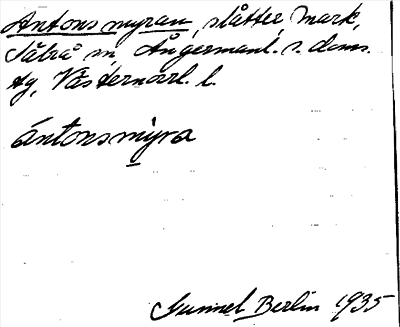 Antonsmyran, slåttermark,
Sätrå sn, Ångermanl. s. doms.
tg, Västernorrl. l.
ántonsmyra
Gunnel Berlin 1935